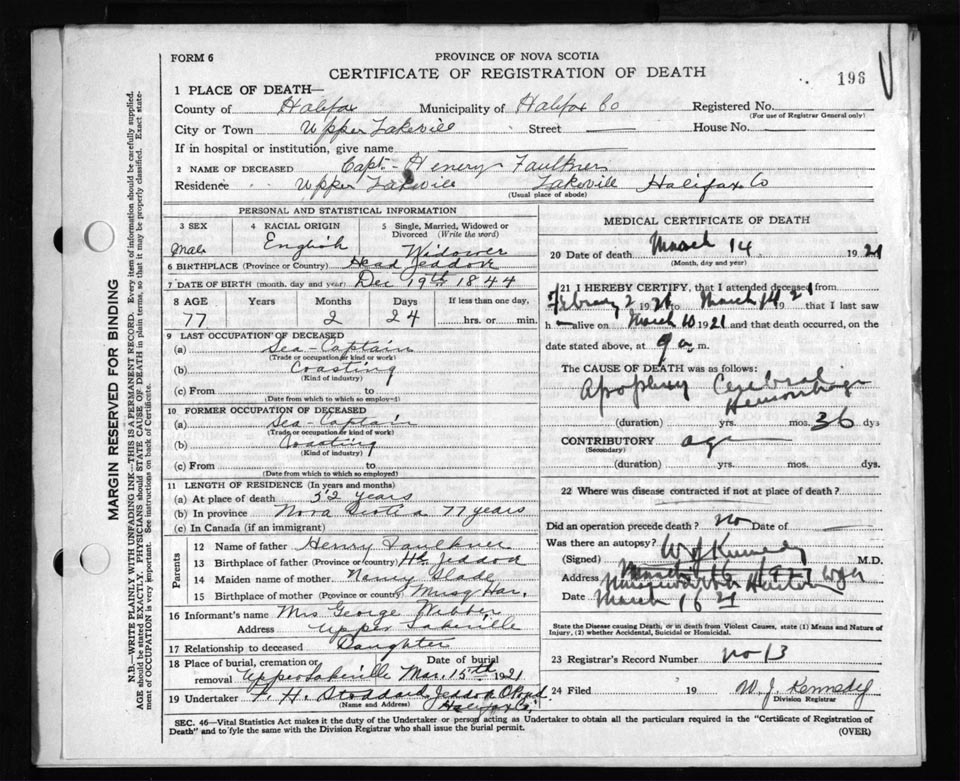 FORM 6
PROVINCE OF NOVA SCOTIA
CERTIFICATE OF REGISTRATION OF DEATH
196
1 PLACE OF DEATH—
County of Halifax Municipality of Halifax Co Registered No.
(For use of Registrar General only)
City or Town Upper Lakevill Street — House No.
If in hospital or institution, give name
2 NAME OF DECEASED Capt- Henery Faulkner
Residence Upper Lakevill Lakevill Halifax Co
(Usual place of abode)
PERSONAL AND STATISTICAL INFORMATION
3 SEX 4 RACIAL ORIGIN 5 Single, Married, Widowed or Divorced (Write the word)
Male English Widower
6 BIRTHPLACE (Province or Country) Head Jeddore
7 DATE OF BIRTH (month, day and year) Dec 19th 1844
8 AGE Years Months Days If less than one day,
77 2 24 hrs. or min.
9 LAST OCCUPATION OF DECEASED
(a) Sea-Captain
(Trade or occupation or kind of work)
(b) Coasting
(Kind of industry)
(c) From to
(Date from which to which so employed)
10 FORMER OCCUPATION OF DECEASED
(a) Sea-Captain
(Trade or occupation or kind of work)
(b) Coasting
(Kind of industry)
(c) From to
(Date from which to which so employed)
11 LENGTH OF RESIDENCE (In years and months)
(a) At place of death 52 years
(b) In province Nova Scotia 77 years
(c) In Canada (if an immigrant)
Parents
12 Name of father Henry Faulkner
13 Birthplace of father (Province or country) Hd. Jeddore
14 Maiden name of mother Nancy Slade
15 Birthplace of mother (Province or country) Musq Har.
16 Informant's name Mrs George Webber
Address Upper Lakeville
17 Relationship to deceased Daughter
18 Place of burial, cremation or Date of burial
removal Upper Lakeville Mar. 15th 1921
19 Undertaker F. H. Stoddard Jeddore
(Name and Address) Halifax Co.
MEDICAL CERTIFICATE OF DEATH
20 Date of death March 14 1921
(Month, day and year)
21 I HEREBY CERTIFY, that I attended deceased from
February 2 19 to March 14 1921 that I last saw
h alive on March 10 1921 and that death occurred, on the
date stated above, at 9 a m.
The CAUSE OF DEATH was as follows:
Apoplexy Cerebral
Hemorrhage
(duration) yrs. mos. 36 dys
CONTRIBUTORY age
(Secondary)
(duration) yrs. mos. dys.
22 Where was disease contracted if not at place of death?
Did an operation precede death? no Date of —
Was there an autopsy?
(Signed) W J Kennedy M.D.
Address
Date March 16 21
State the Disease causing Death, or in death from Violent Causes, state (1) Means and Nature of Injury, (2) whether Accidental, Suicidal or Homicidal.
23 Registrar's Record Number no 13
24 Filed 19 W. J. Kennedy
Division Registrar
SEC. 46—Vital Statistics Act makes it the duty of the Undertaker or person acting as Undertaker to obtain all the particulars required in the "Certificate of Registration of
Death" and to fyle the same with the Division Registrar who shall issue the burial permit.
(OVER)
MARGIN RESERVED FOR BINDING
N.B.—WRITE PLAINLY WITH UNFADING INK—THIS IS A PERMANENT RECORD. Every item of information should be carefully supplied.
AGE should be stated EXACTLY. PHYSICIANS should STATE CAUSE OF DEATH in plain terms, so that it may be properly classified. Exact state-
ment of OCCUPATION is very important. See instructions on back of Certificate.